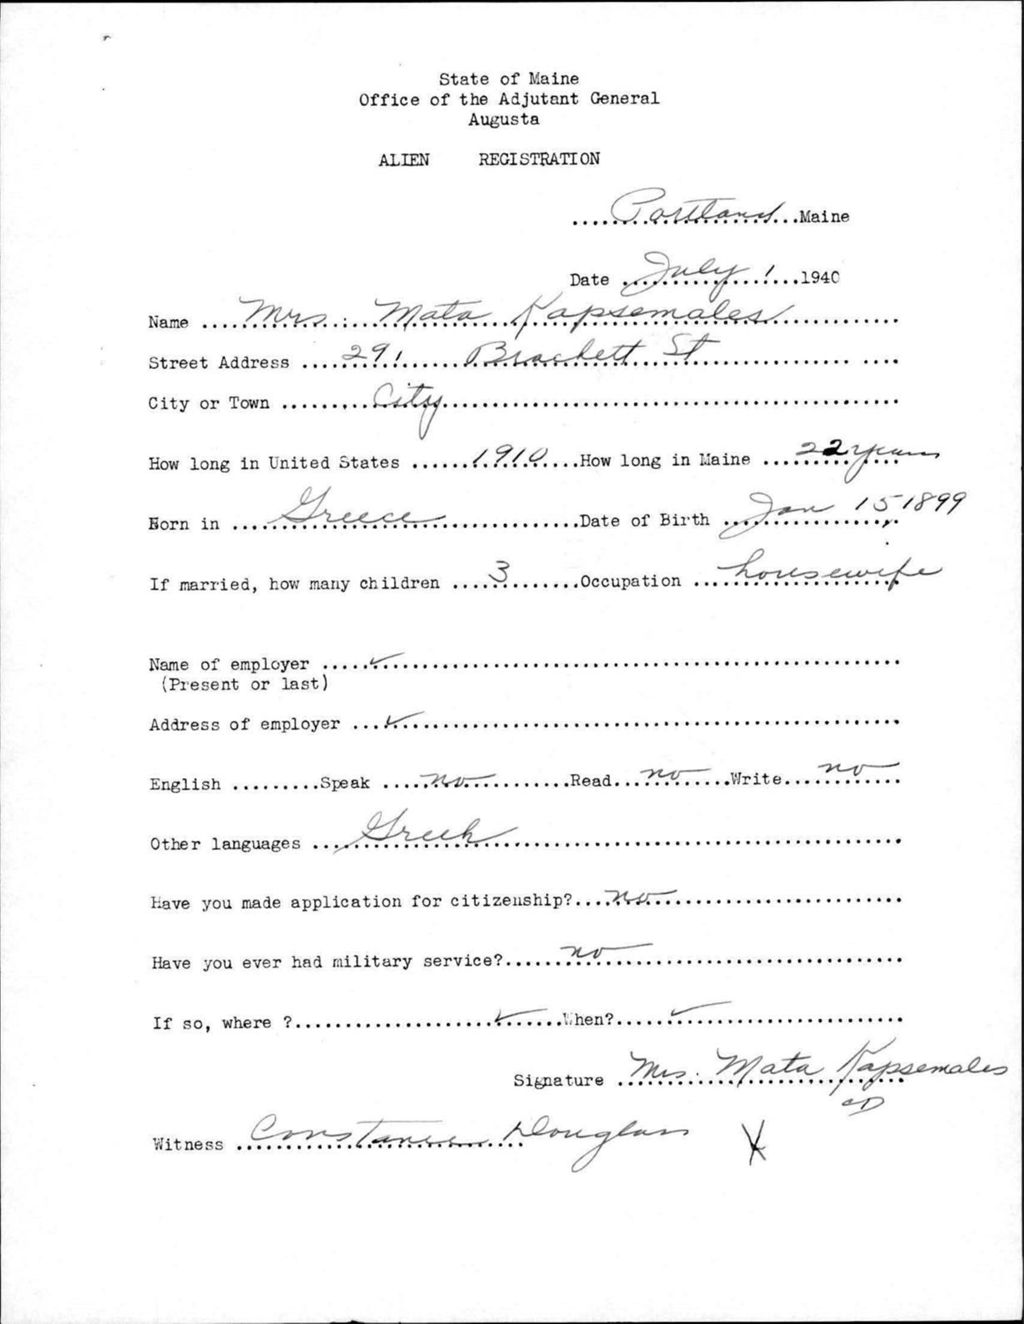 State of Maine
Office of the Adjutant General
Augusta
ALIEN REGISTRATION
Portland Maine
Date July 1 1940
Name Mrs. Mata Kapsemales
Street Address 291 Brackett St
City or Town City
How long in United States 1910 How long in Maine 22 years
Born in Greece Date of Birth Jan 15 1899
If married, how many children 3 Occupation housewife
Name of employer ✓
(Present or last)
Address of employer ✓
English Speak no Read no Write no
Other languages Greek
Have you made application for citizenship? no
Have you ever had military service? no
If so, where ? ✓ When? ✓
Signature Mrs. Mata Kapsemales
CD
Witness Constance Douglass X